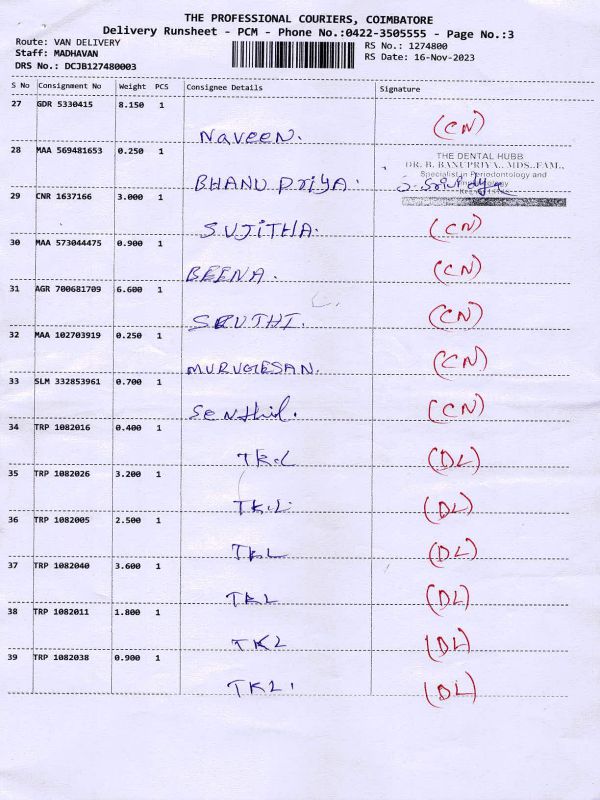 THE PROFESSIONAL COURIERS, COIMBATORE
Delivery Runsheet - PCM - Phone No.:0422-3505555 - Page No.:3
Route: VAN DELIVERY
Staff: MADHAVAN
DRS No.: DCJB127480003
RS No.: 1274800
RS Date: 16-Nov-2023
S No Consignment No Weight PCS Consignee Details Signature
27 GDR 5330415 8.150 1
Naveen. (CN)
28 MAA 569481653 0.250 1
THE DENTAL HUBB
DR. B. BANUPRIYA., MDS.,FAM.,
Specialist in Periodontology and
BHANU PriyA.
29 CNR 1637166 3.000 1
SUJITHA. (CN)
30 MAA 573044475 0.900 1
BEENA. (CN)
31 AGR 700681709 6.600 1
SRUTHI. (CN)
32 MAA 102703919 0.250 1
MURUGESAN. (CN)
33 SLM 332853961 0.700 1
Senthil. (CN)
34 TRP 1082016 0.400 1
TK.L (DL)
35 TRP 1082026 3.200 1
TK.L (DL)
36 TRP 1082005 2.500 1
TKL (DL)
37 TRP 1082040 3.600 1
TKL (DL)
38 TRP 1082011 1.800 1
TKL (DL)
39 TRP 1082038 0.900 1
TKL. (DL)